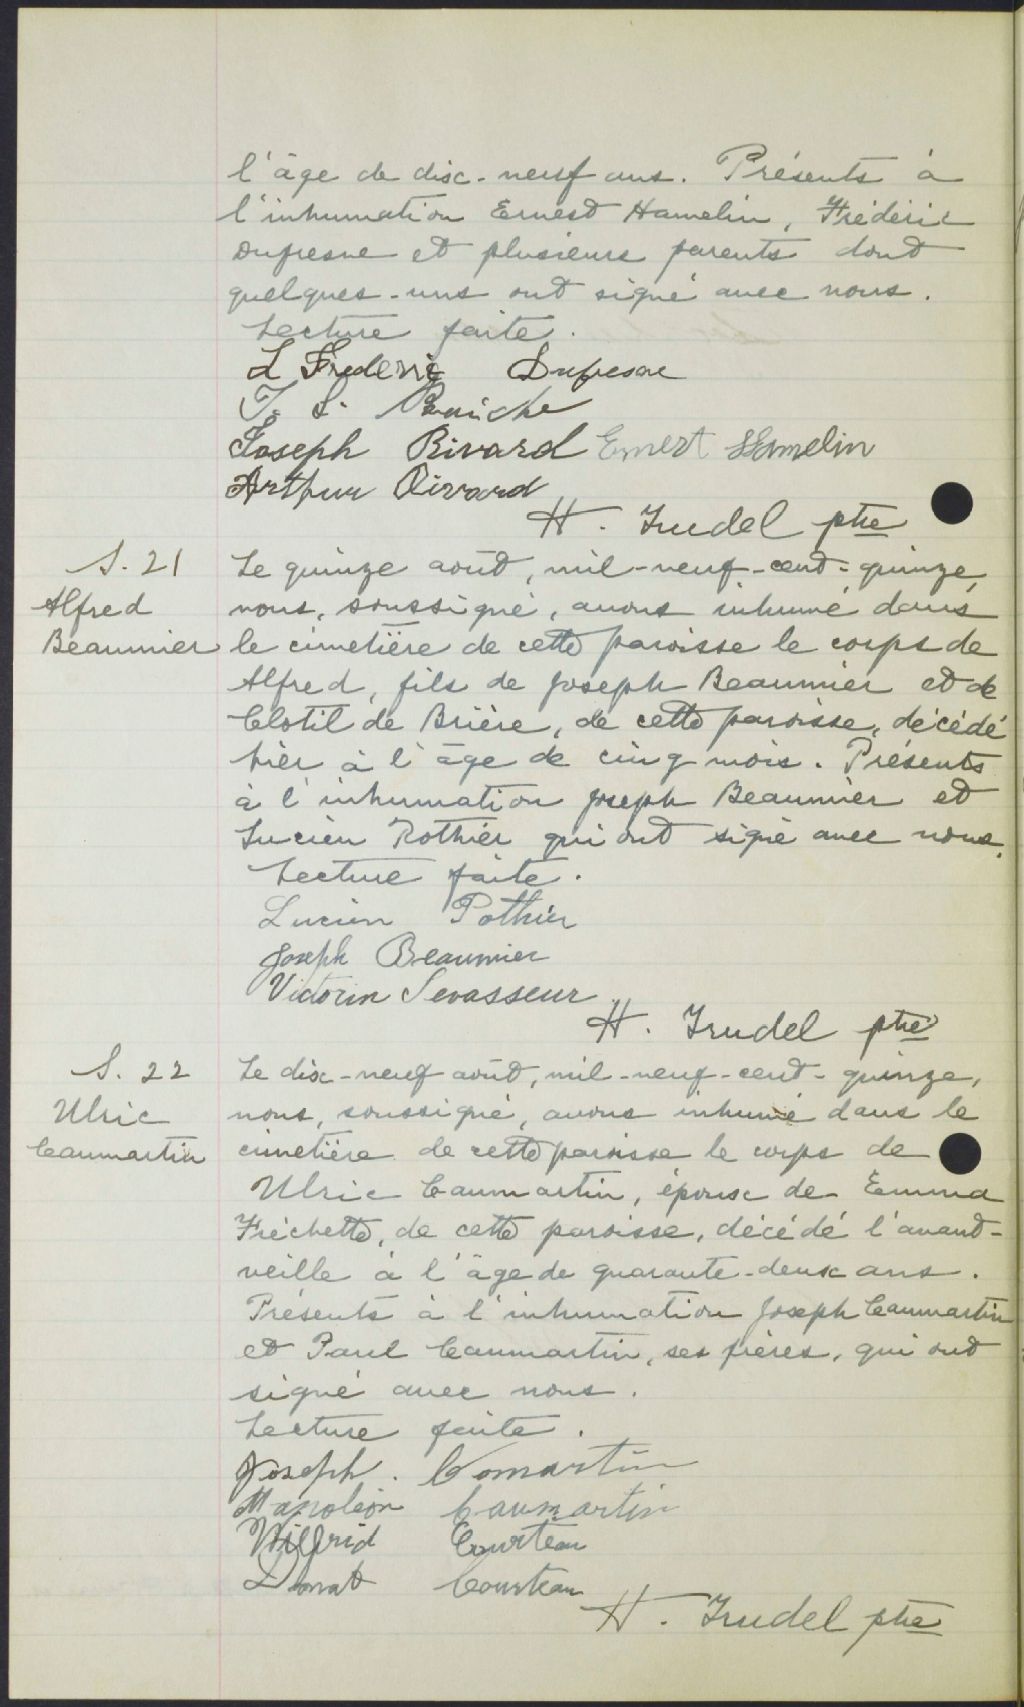 l'âge de dix-neuf ans. Présents à
l'inhumation Ernest Hamelin, Frédéric
Dufresne et plusieurs parents dont
quelques-uns ont signé avec nous.
Lecture faite.
L Frederic Dufresne
J. L.
Joseph Rivard Ernest Hamelin
Arthur Rivard
H. Trudel ptre
S. 21
Alfred
Beaumier
Le quinze août, mil-neuf-cent-quinze,
nous, soussigné, avons inhumé dans
le cimetière de cette paroisse le corps de
Alfred, fils de Joseph Beaumier et de
Clotilde Brière, de cette paroisse, décédé
hier à l'âge de cinq mois. Présents
à l'inhumation Joseph Beaumier et
Lucien Pothier qui ont signé avec nous.
Lecture faite.
Lucien Pothier
Joseph Beaumier
Victorin Levasseur
H. Trudel ptre
S. 22
Ulric
Caumartin
Le dix-neuf août, mil-neuf-cent-quinze,
nous, soussigné, avons inhumé dans le
cimetière de cette paroisse le corps de
Ulric Caumartin, épouse de Emma
Fréchette, de cette paroisse, décédé l'avant-
veille à l'âge de quarante-deux ans.
Présents à l'inhumation Joseph Caumartin
et Paul Caumartin, ses frères, qui ont
signé avec nous.
Lecture faite.
Joseph. Comartin
Napoléon Caumartin
Wilfrid Courteau
Donat Courteau
H. Trudel ptre